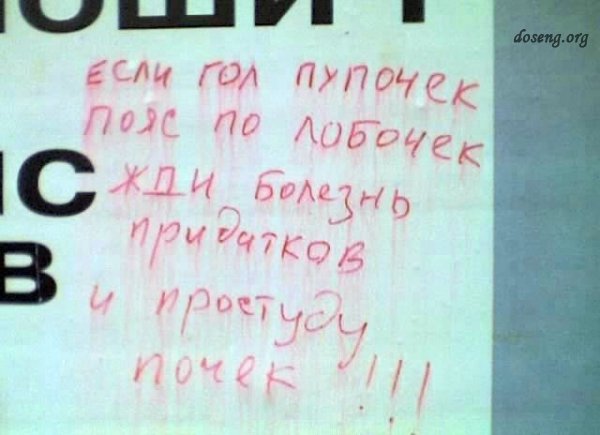 doseng.org
ЕСЛИ ГОЛ ПУПОЧЕК
ПОЯС ПО ЛОБОЧЕК
ЖДИ БОЛЕЗНЬ
ПРИДАТКОВ
И ПРОСТУДУ
ПОЧЕК !!!